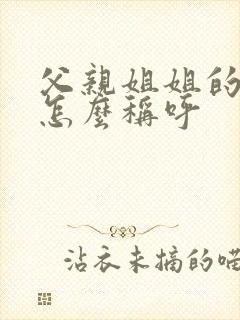 父親姐姐的
怎麼稱呼
沾衣未摘的喵